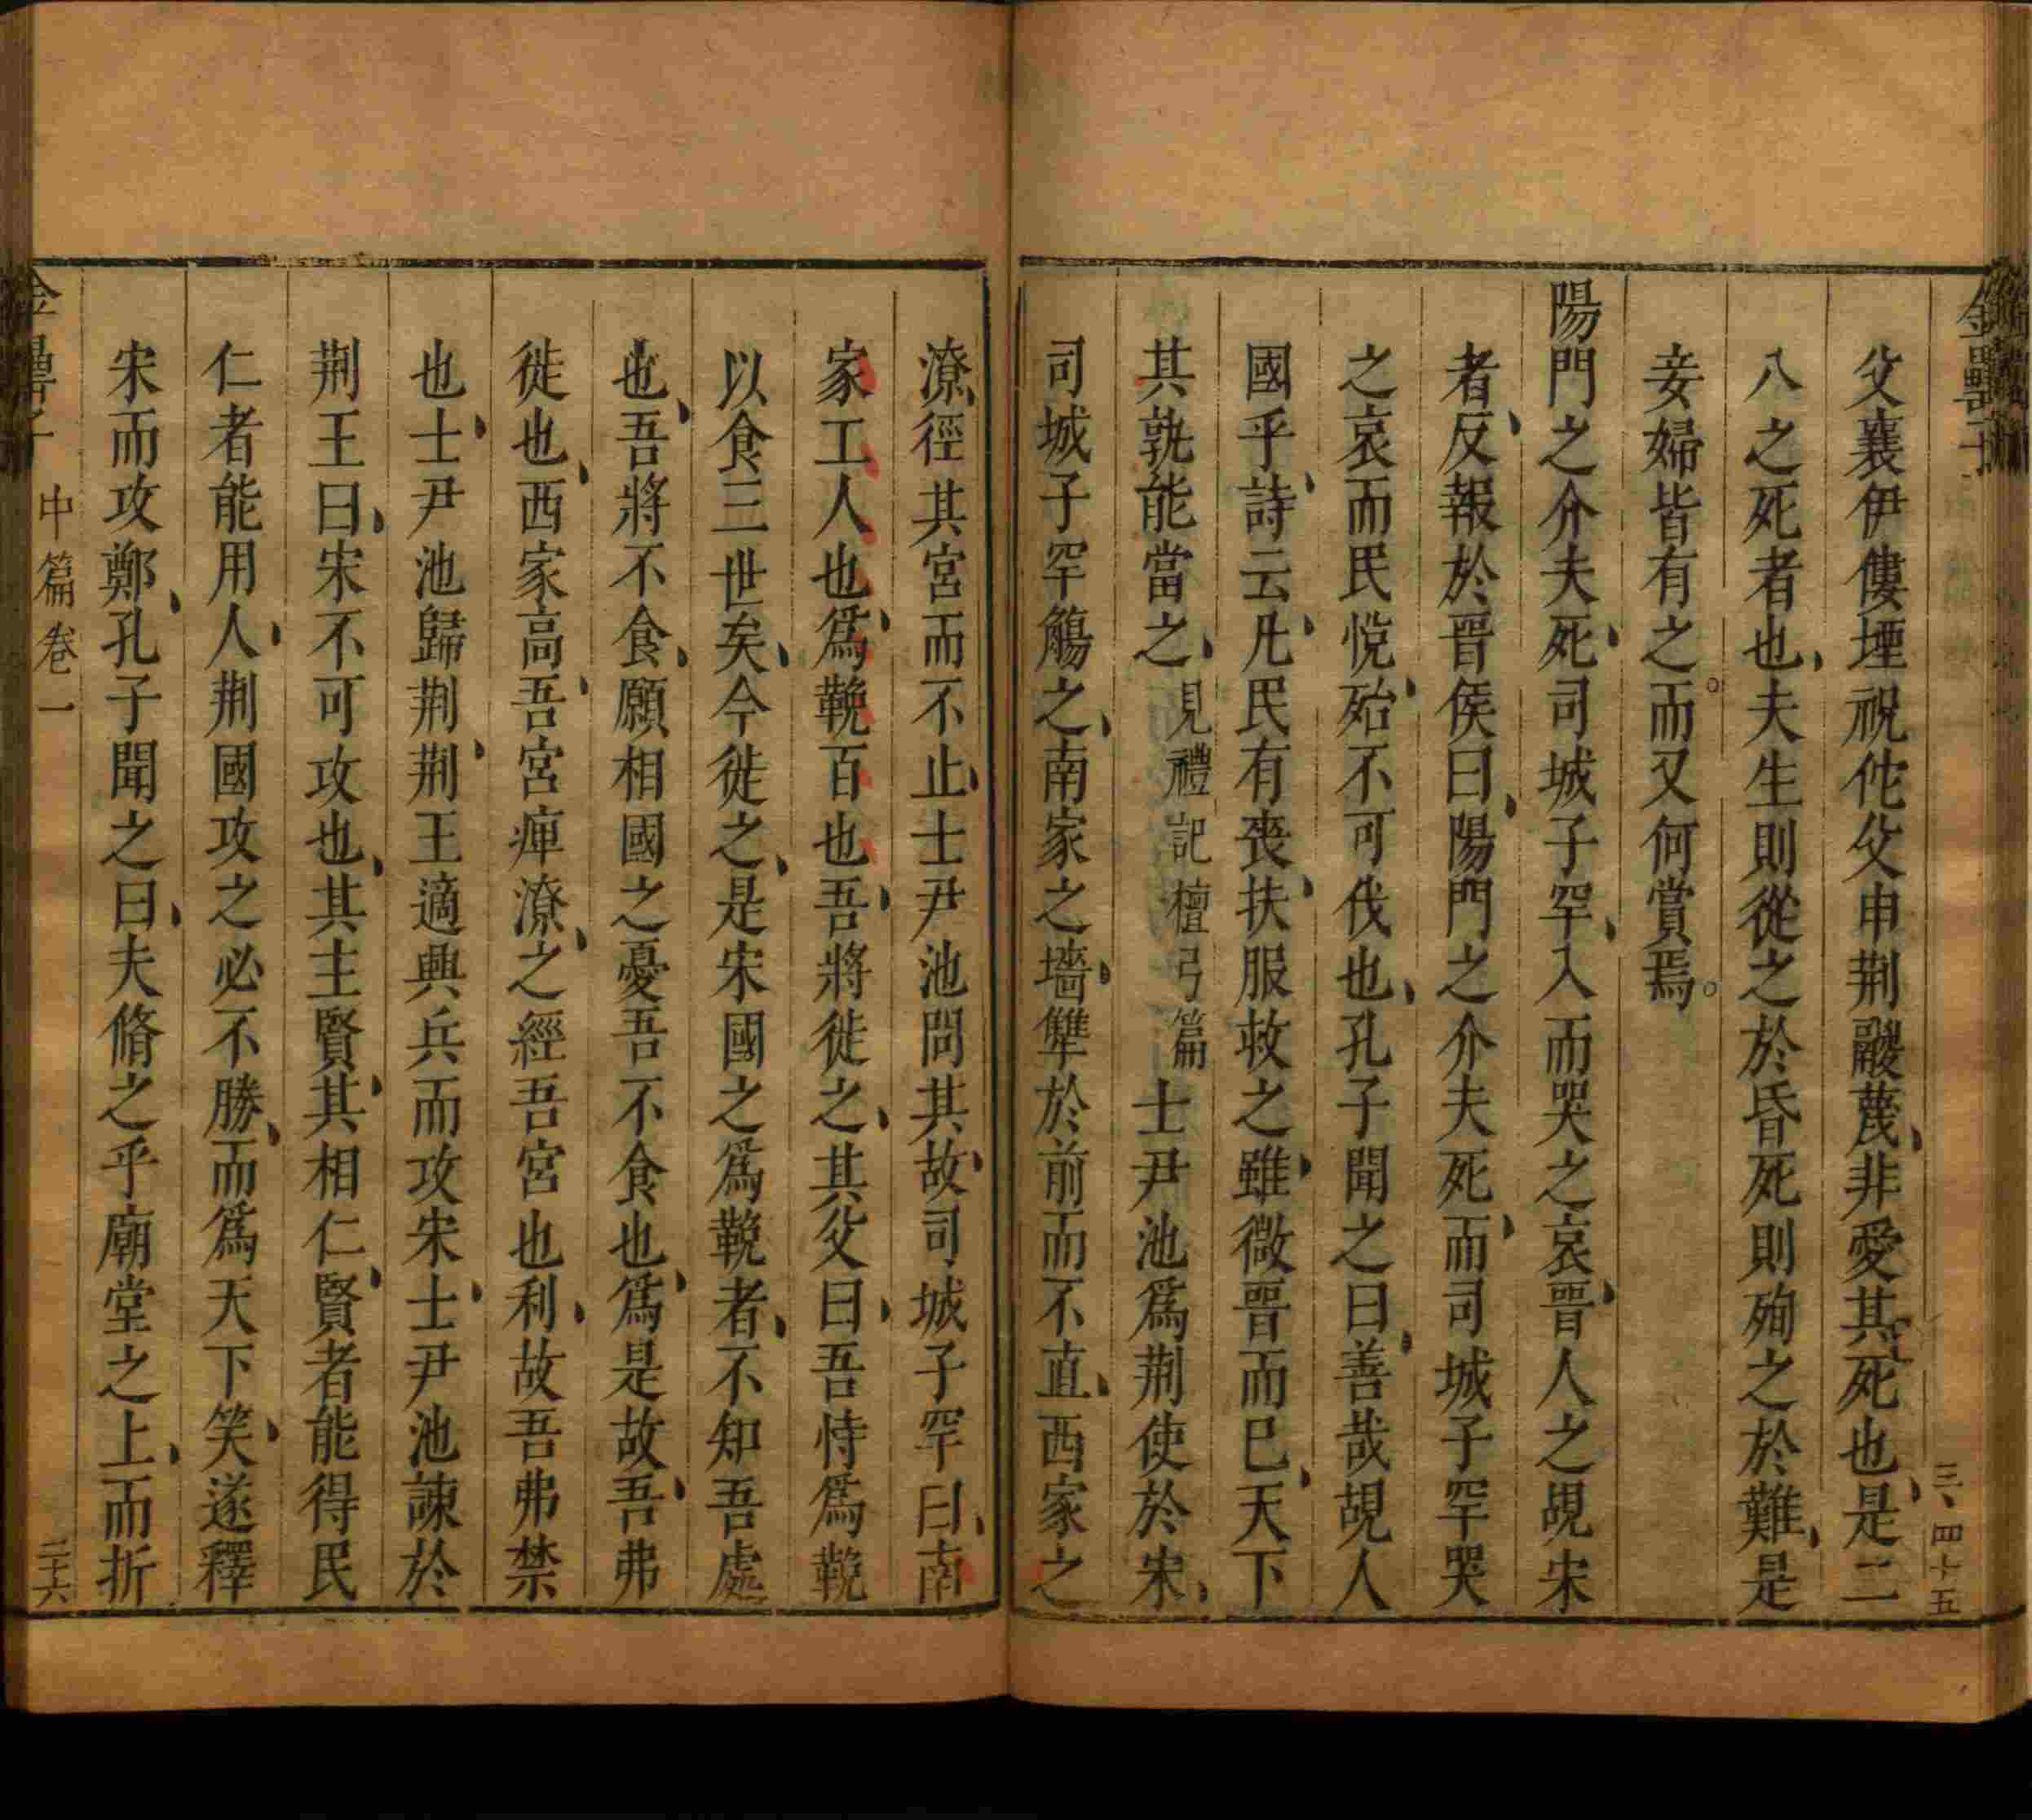 金罍子
父襄伊僂堙祝佗父申荆鬷蔑非愛其死也是二
八之死者也夫生則從之於昏死則殉之於難是
妾婦皆有之而又何賞焉
陽門之介夫死司城子罕入而哭之哀晉人之覘宋
者反報於晉侯曰陽門之介夫死而司城子罕哭
之哀而民悅殆不可伐也孔子聞之曰善哉覘人
國乎詩云凡民有喪扶服救之雖微晉而巳天下
其孰能當之見禮記檀弓篇士尹池爲荆使於宋
司城子罕觴之南家之墻犨於前而不直西家之
潦徑其宮而不止士尹池問其故司城子罕曰南
家工人也爲鞔百也吾將徙之其父曰吾恃爲鞔
以食三世矣今徙之是宋國之爲鞔者不知吾處
也吾將不食願相國之憂吾不食也爲是故吾弗
徙也西家高吾宮痺潦之經吾宮也利故吾弗禁
也士尹池歸荆荆王適興兵而攻宋士尹池諫於
荆王曰宋不可攻也其主賢其相仁賢者能得民
仁者能用人荆國攻之必不勝而爲天下笑遂釋
宋而攻鄭孔子聞之曰夫脩之乎廟堂之上而折
金罍子 中篇卷一 二十六